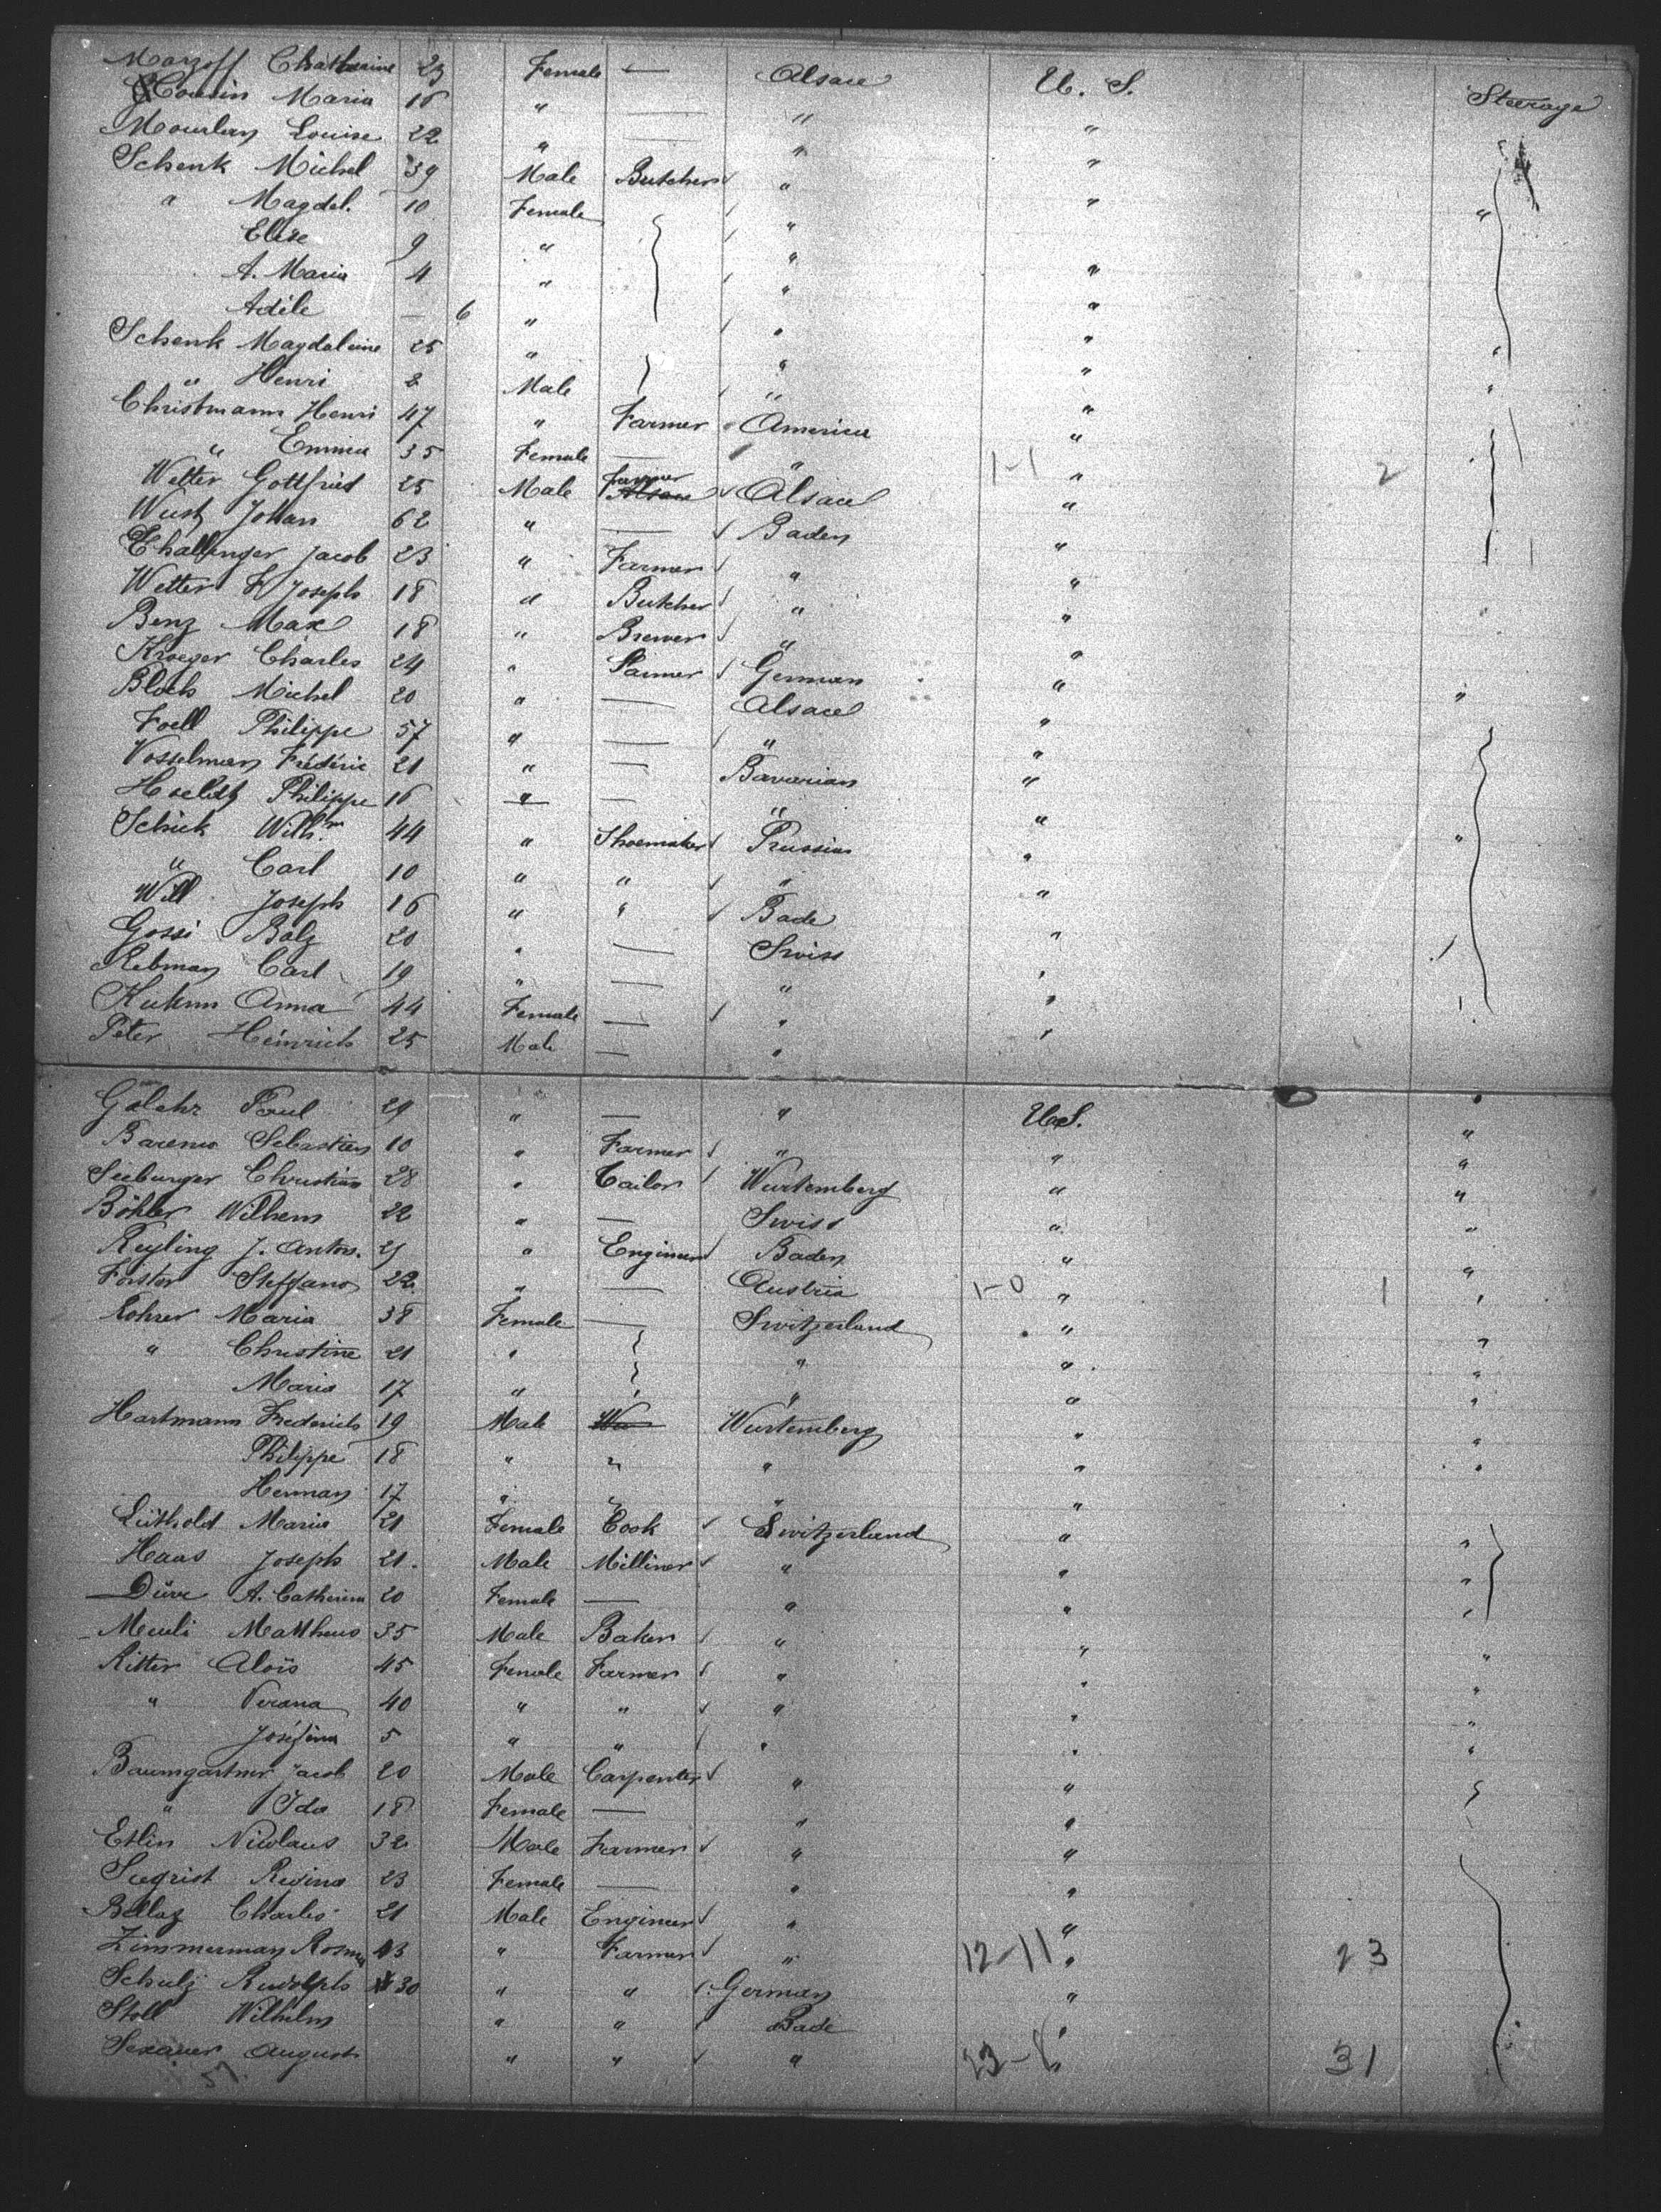 Marzoff Chatharine 23 Female — Alsace U. S. Steerage
Cousin Maria 16 " — " "
Mourlan Louise 22 " — " "
Schenk Michel 39 Male Butcher " " "
" Magdel. 10 Female "
Elise 9 " " "
A. Maria 4 " " "
Adéle — 6 " " "
Schenk Magdaleine 25 " " " "
" Henri 2 Male " " "
Christmann Henri 47 " Farmer America "
" Emma 35 Female — " 1-1 " 2
Wetter Gottfried 25 Male Farmer Alsace "
Wust Johan 62 " — Baden "
Challenger Jacob 23 " Farmer " "
Wetter F Joseph 18 " Butcher " "
Benz Max 18 " Brewer " "
Kroeger Charles 24 " Farmer German "
Bloch Michel 20 " — Alsace " "
Foell Philippe 57 " — " "
Vosselman Fréderic 21 " — Bavarian "
Philippe 16 " — " "
Schick Wilhm 44 " Shoemaker Prussian " "
" Carl 10 " " " "
Will Joseph 16 " " Bade "
Gossi Balz 20 " — Swiss "
Rebman Carl 19 " — " "
Anna 44 Female — " "
Peter Heinrich 25 Male — "
Paul 29 " — " U.S. "
Sebastien 10 " Farmer " " "
Seeburger Christian 28 " Tailor Wurtemberg " "
Böhler Wilhem 22 " — Swiss " "
Reyling J. Anton. 21 " Engineer Baden " "
Forster Steffano 22 " — Austria 1-0 " 1 "
Rohrer Maria 38 Female — Switzerland " "
" Christine 21 " " " "
Maria 17 " " " "
Hartmann Frederich 19 Male Wurtemberg " "
Philippe 18 " " " " "
Herman 17 " " " "
Lüthold Maria 21 Female Cook Switzerland " "
Haas Joseph 21 Male Milliner " " "
Dürr A. Catherina 20 Female — " " "
Meuli Mattheus 35 Male Baker " " "
Ritter Aloïs 45 Female Farmer " " "
" Verana 40 " " " " "
Joséfina 5 " " " " "
Baumgartner Jacob 20 Male Carpenter " "
" Ida 18 Female — " "
Etlin Nicolaus 32 Male Farmer " "
Siegrist Regina 23 Female — " "
Bellaz Charles 21 Male Engineer " "
Zimmerman 43 " Farmer " 12-11 " 23
Schulz Rudolph 30 " " German "
Stoll Wilhelm " " Bade "
Sexauer August " " " 23-8 " 31